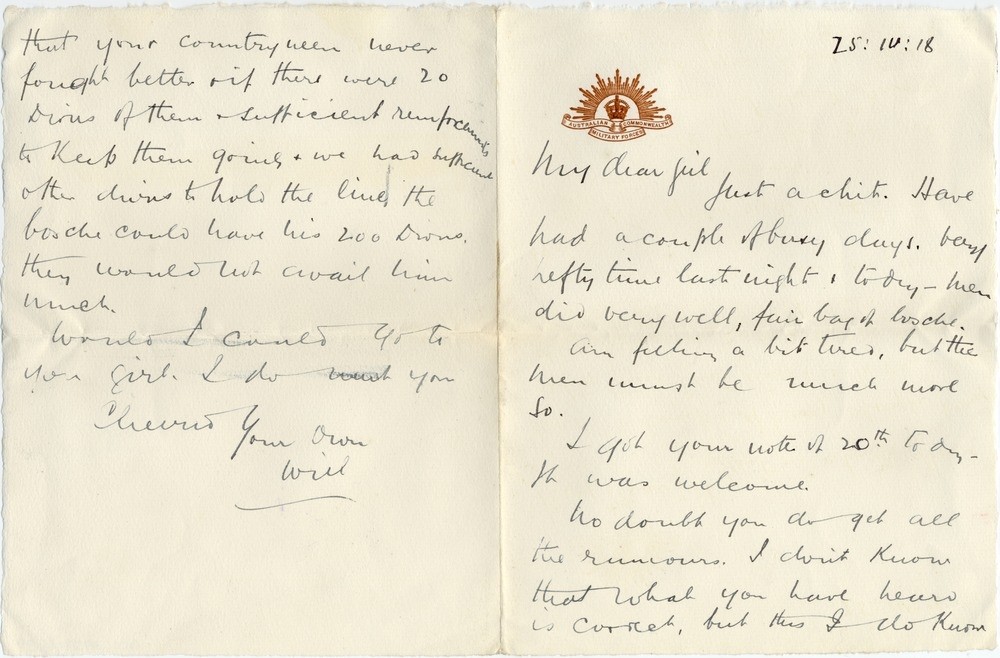 25:IV:18
AUSTRALIAN COMMONWEALTH
MILITARY FORCES
My dear girl
Just a chit. Have
had a couple of busy days. Very
hefty time last night & today - men
did very well, fair bag of bosche.
Am feeling a bit tired, but the
men must be much more
so.
I got your note of 20th today -
It was welcome.
No doubt you do get all
the rumours. I don't know
that what you have heard
is correct, but this I do know
that your countrymen never
fought better & if there were 20
Divns of them & sufficient reinforcements
to keep them going & we had sufficient
other divns to hold the line, the
bosche could have his 200 Divns.
they would not avail him
much.
Would I could go to
you girl. I do want you
Cheerio Your Own
Will